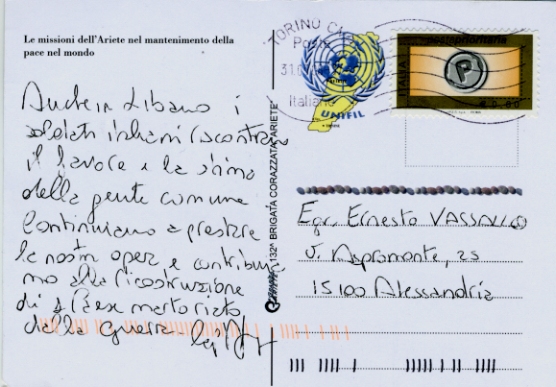 Le missioni dell'Ariete nel mantenimento della
pace nel mondo
Anche in Libano i
soldati italiani riscontrano
il favore e la stima
della gente comune
Continuiamo a prestare
la nostra opera e contribuia
mo alla ricostruzione
di 1 Paese martoriato
dalla guerra
132ª BRIGATA CORAZZATA "ARIETE"
TORINO C
Poste
31.0
Italiane
UNIFIL
ITALIA
postaprioritaria
€ 0,60
P
Egr. Ernesto VASSALLO
V. Aspromonte, 25
15100 Alessandria